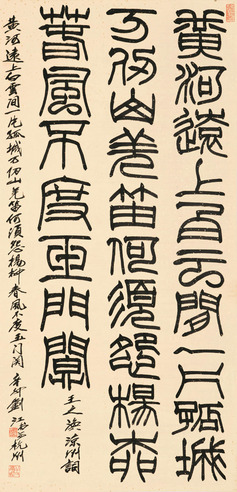 黄河遠上白云間一片孤城
万仞山羌笛何須怨楊柳
春風不度玉門關
王之渙涼州詞
黄河遠上白云間一片孤城万仞山羌笛何須怨楊柳春風不度玉门関 辛卯劉江於杭州